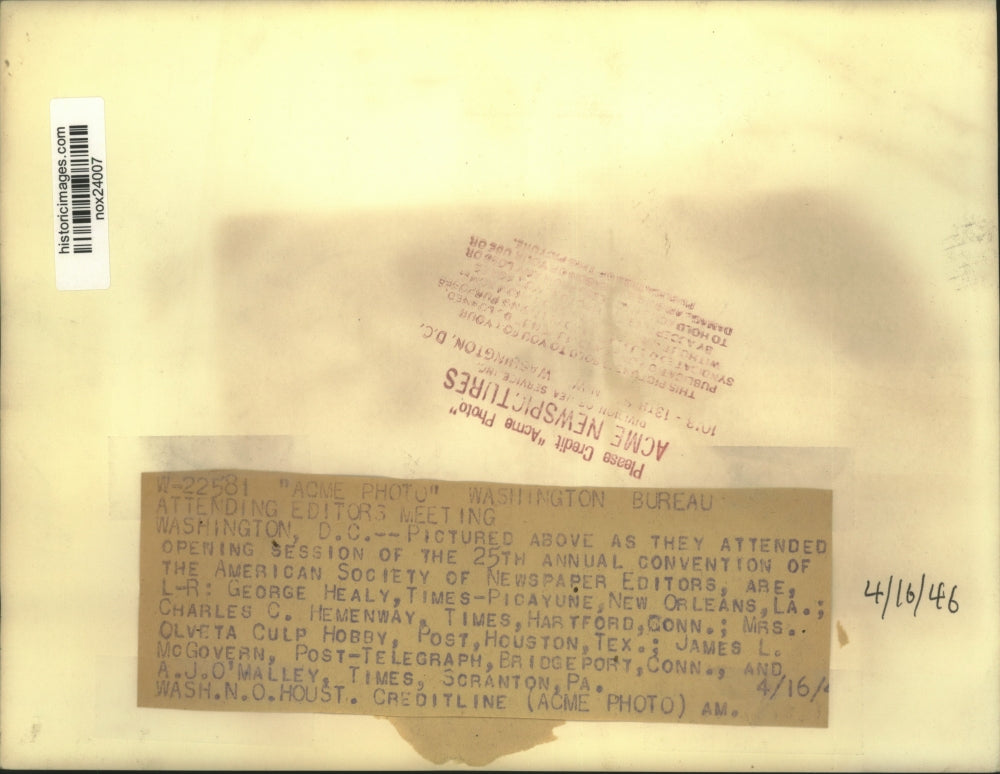 historicimages.com
nox24007
Please Credit "Acme Photo"
ACME NEWSPICTURES
DIVISION OF NEA SERVICE INC.
1013 - 13TH WASHINGTON, D.C.
THIS PICTURE SOLD TO YOU FOR YOUR
PUBLICATION
TO HOLD
W-22581 "ACME PHOTO" WASHINGTON BUREAU
ATTENDING EDITORS MEETING
WASHINGTON, D.C.--PICTURED ABOVE AS THEY ATTENDED
OPENING SESSION OF THE 25TH ANNUAL CONVENTION OF
THE AMERICAN SOCIETY OF NEWSPAPER EDITORS, ARE,
L-R: GEORGE HEALY, TIMES-PICAYUNE, NEW ORLEANS, LA.;
CHARLES C. HEMENWAY, TIMES, HARTFORD, CONN.; MRS.
OLVETA CULP HOBBY, POST, HOUSTON, TEX.; JAMES L.
MCGOVERN, POST-TELEGRAPH, BRIDGEPORT, CONN., AND
A.J.O'MALLEY, TIMES, SCRANTON, PA.
4/16/
WASH.N.O.HOUST. CREDITLINE (ACME PHOTO) AM.
4/16/46